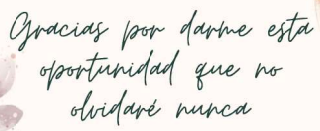 Gracias por darme esta
oportunidad que no
olvidaré nunca